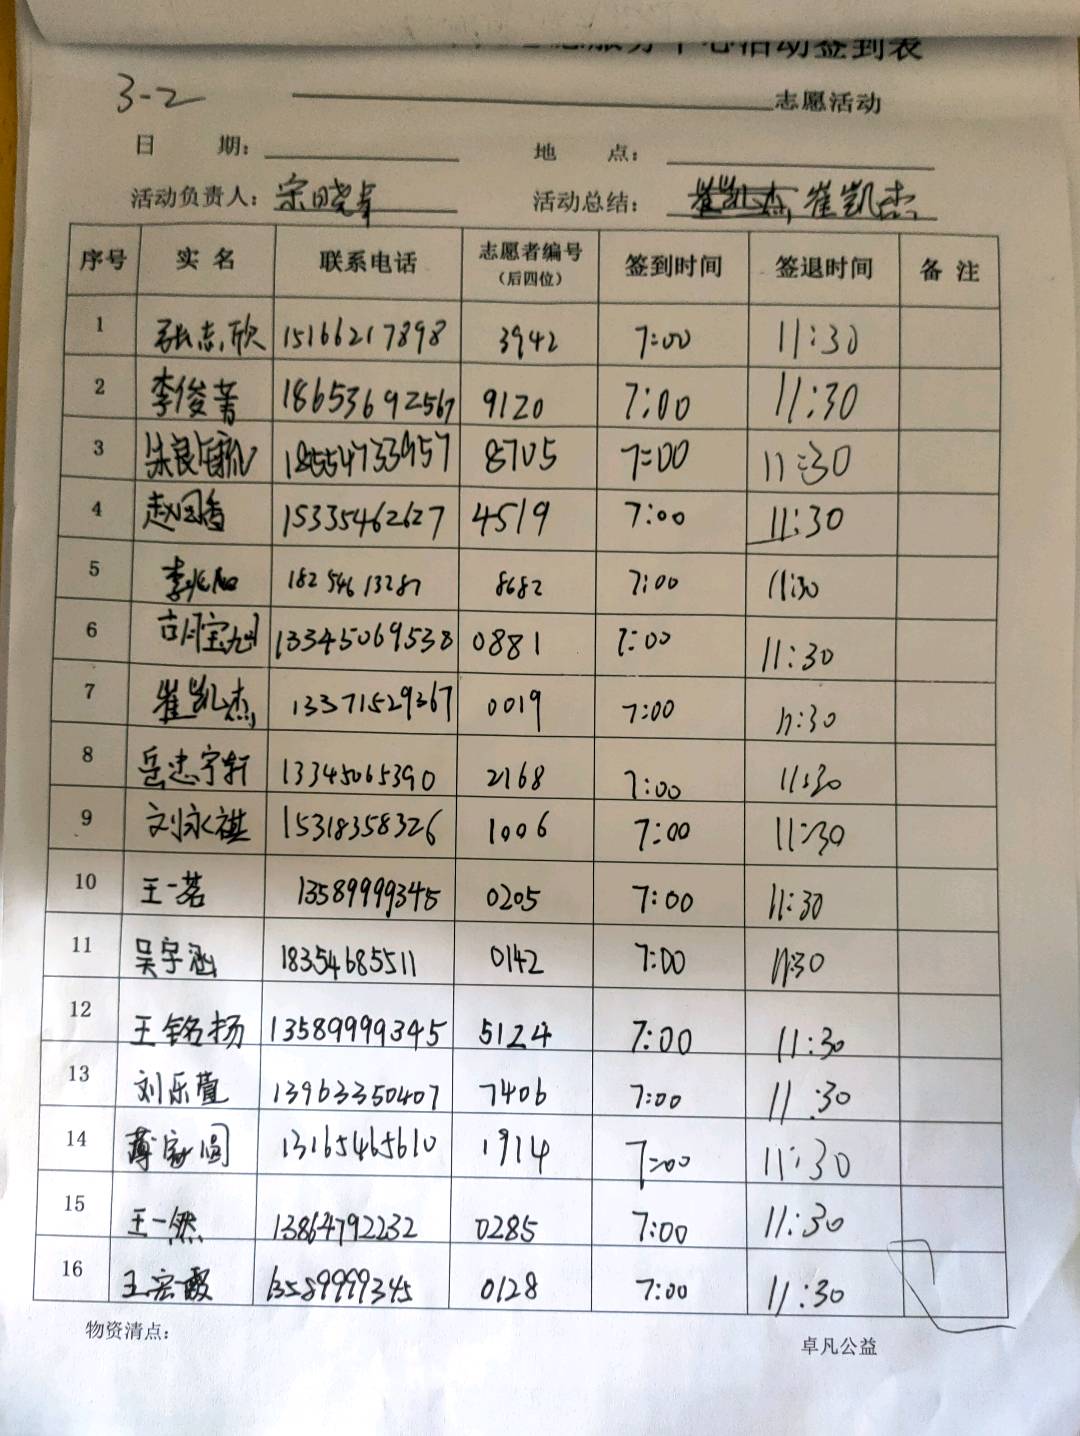 服务中心活动签到表
3-2 志愿活动
日 期： 地 点：
活动负责人：宗晓 活动总结：崔凯杰
序号 实名 联系电话 志愿者编号（后四位） 签到时间 签退时间 备注
1 张志欣 15166217898 3942 7:00 11:30
2 李俊菁 18653692567 9120 7:00 11:30
3 朱良 18554733957 8705 7:00 11:30
4 赵国香 15335462627 4519 7:00 11:30
5 李 18254613287 8682 7:00 11:30
6 胡宝旭 13345069538 0881 7:00 11:30
7 崔凯杰 13371529367 0019 7:00 11:30
8 岳忠宇轩 13345065390 2168 7:00 11:30
9 刘永祺 15318358326 1006 7:00 11:30
10 王一茗 13589999345 0205 7:00 11:30
11 吴宇涵 18354685511 0142 7:00 11:30
12 王铭扬 13589999345 5124 7:00 11:30
13 刘乐萱 13963350407 7406 7:00 11:30
14 薄家圆 13165465610 1914 7:00 11:30
15 王一然 13864792232 0285 7:00 11:30
16 王宏霞 13589999345 0128 7:00 11:30
物资清点：
卓凡公益